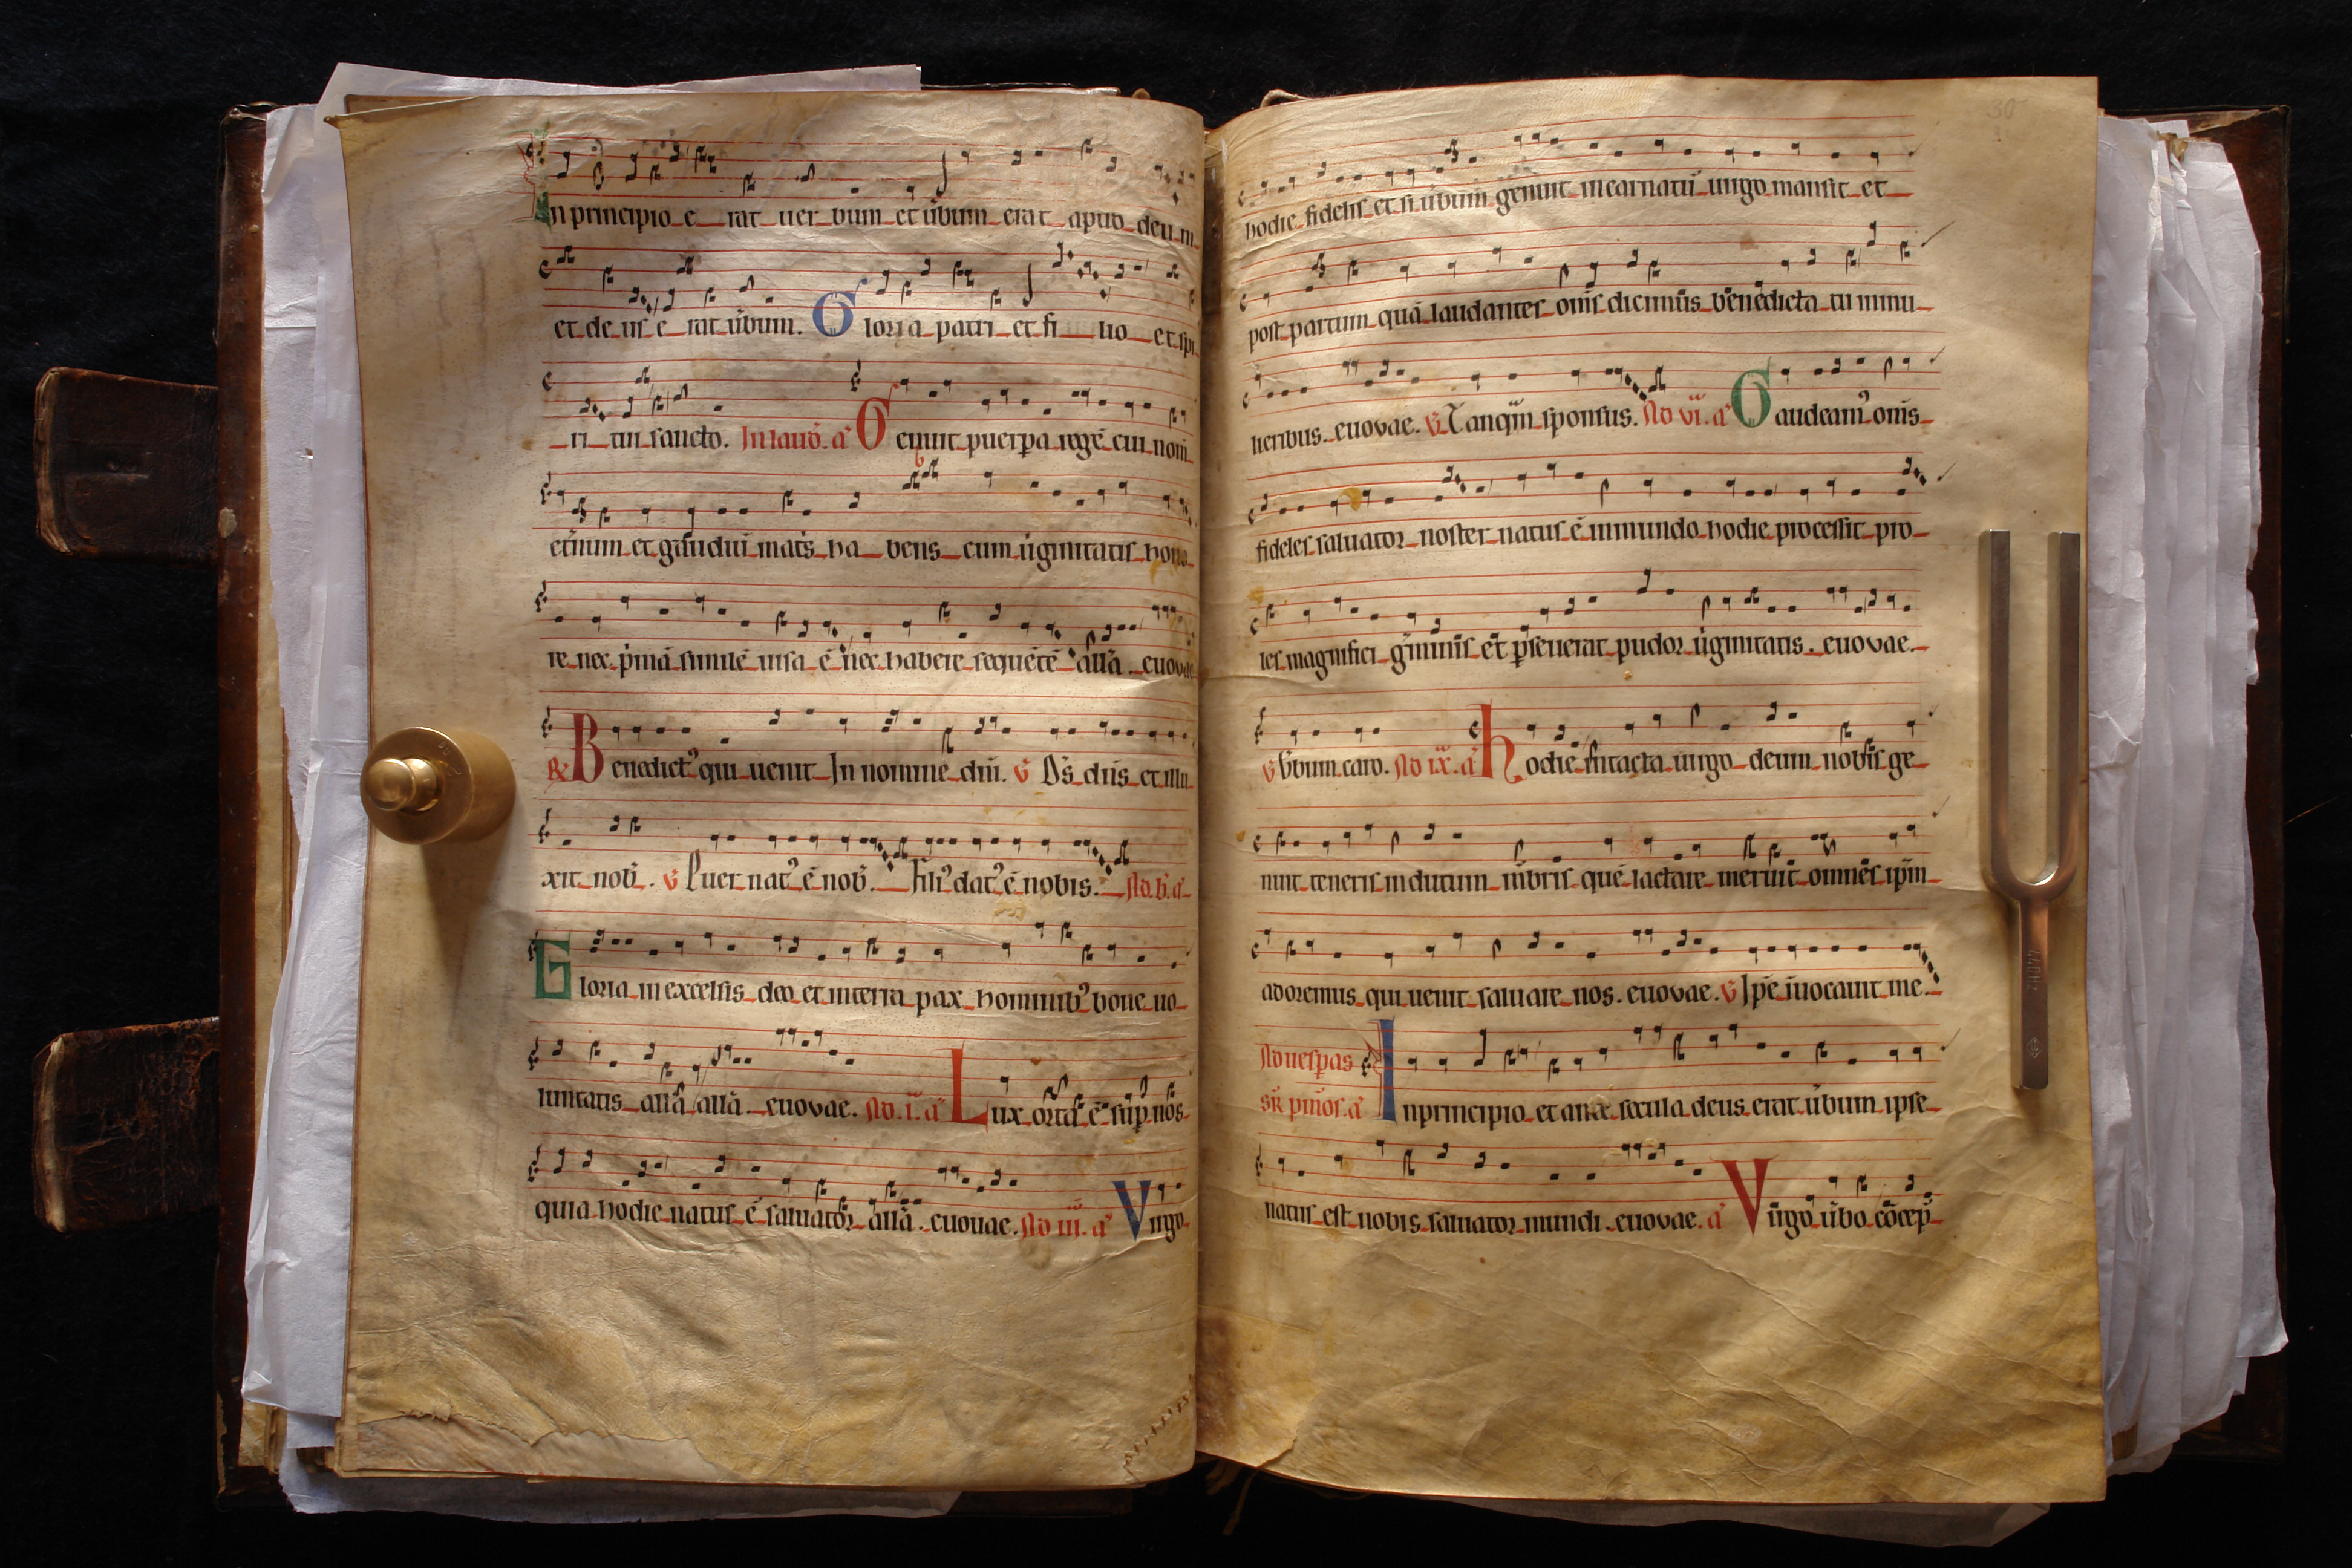 In principio e rat uer bum et ūbum erat apud deu m
et de us e rat ūbum. Gloria patri et fi lio et spi
ri tui sancto. In laud. a Genuit puerpa regē cui nom̄
et̄num et gaudiū mat̄s ha bens cum ūginitatis hono
re nec p̄mā similē uisa ē nec habere sequētē allā. euovae
℟ Benedict᾽ qui uenit In nomine dn̄i. ℣ Ds̄ dn̄s et illu
xit nob̄. ℣ Puer nat᾽ ē nob̄. Fili᾽ dat᾽ ē nobis. Ad. b̄. a᾽
Gloria in excelsis deo et in terra pax hominib᾽ bone uo
luntatis allā allā. euovae. Ad. i. a᾽ Lux orta ē sup nos
quia hodie natus ē saluator allā. euouae. Ad iii. a᾽ Virgo
30
hodie fidelis et si ūbum genuit incarnatū uirgo mansit et
post partum quā laudantes om̄s dicim᾽ benedicta tu in mu
lieribus. euovae. ℣ Tanq̄m sponsus. Ad vi. a᾽ Gaudeam᾽ om̄s
fideles saluator noster natus ē in mundo hodie processit pro
les magnifici ḡminis et pseuerat pudor ūginitatis. euovae.
℣ Ūbum caro. Ad ix. a᾽ Hodie intacta uirgo deum nobis ge
nuit teneris indutum mēbris quē lactare meruit omnes ip̄m
adoremus qui uenit saluare nos. euovae. ℣ Ipse īuocauit me.
Ad uespas
sr̄ pm̄os. a᾽ In principio et ante secula deus erat ūbum ipse
natus est nobis saluator mundi. euovae. a᾽ Virgo ūbo cōcep